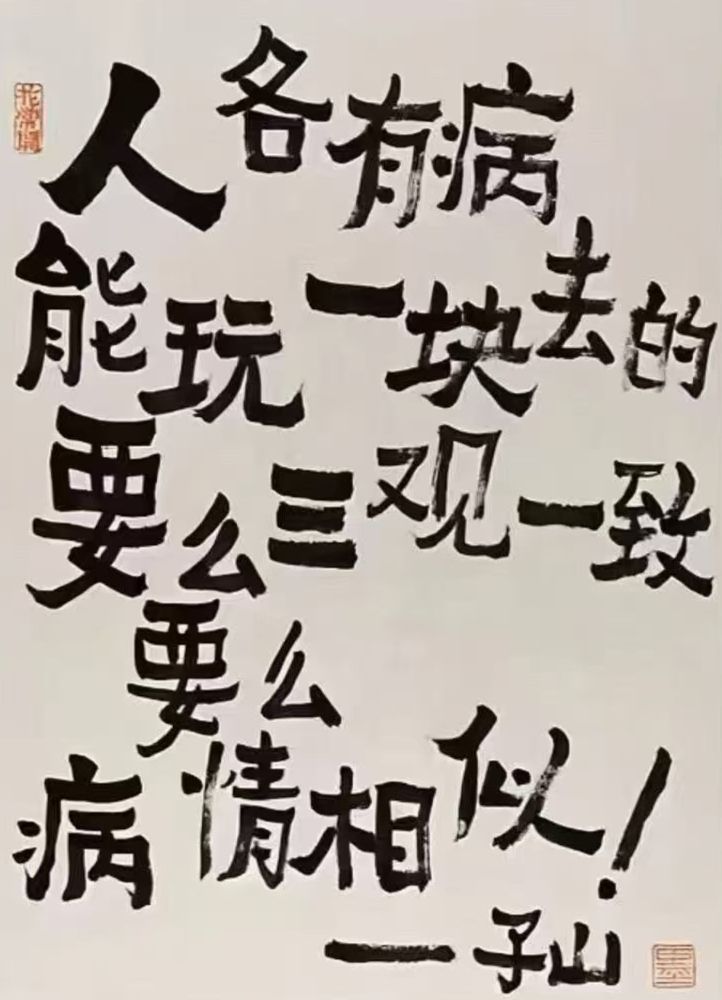 人各有病
能玩一块去的
要么三观一致
要么
病情相似!
一子山